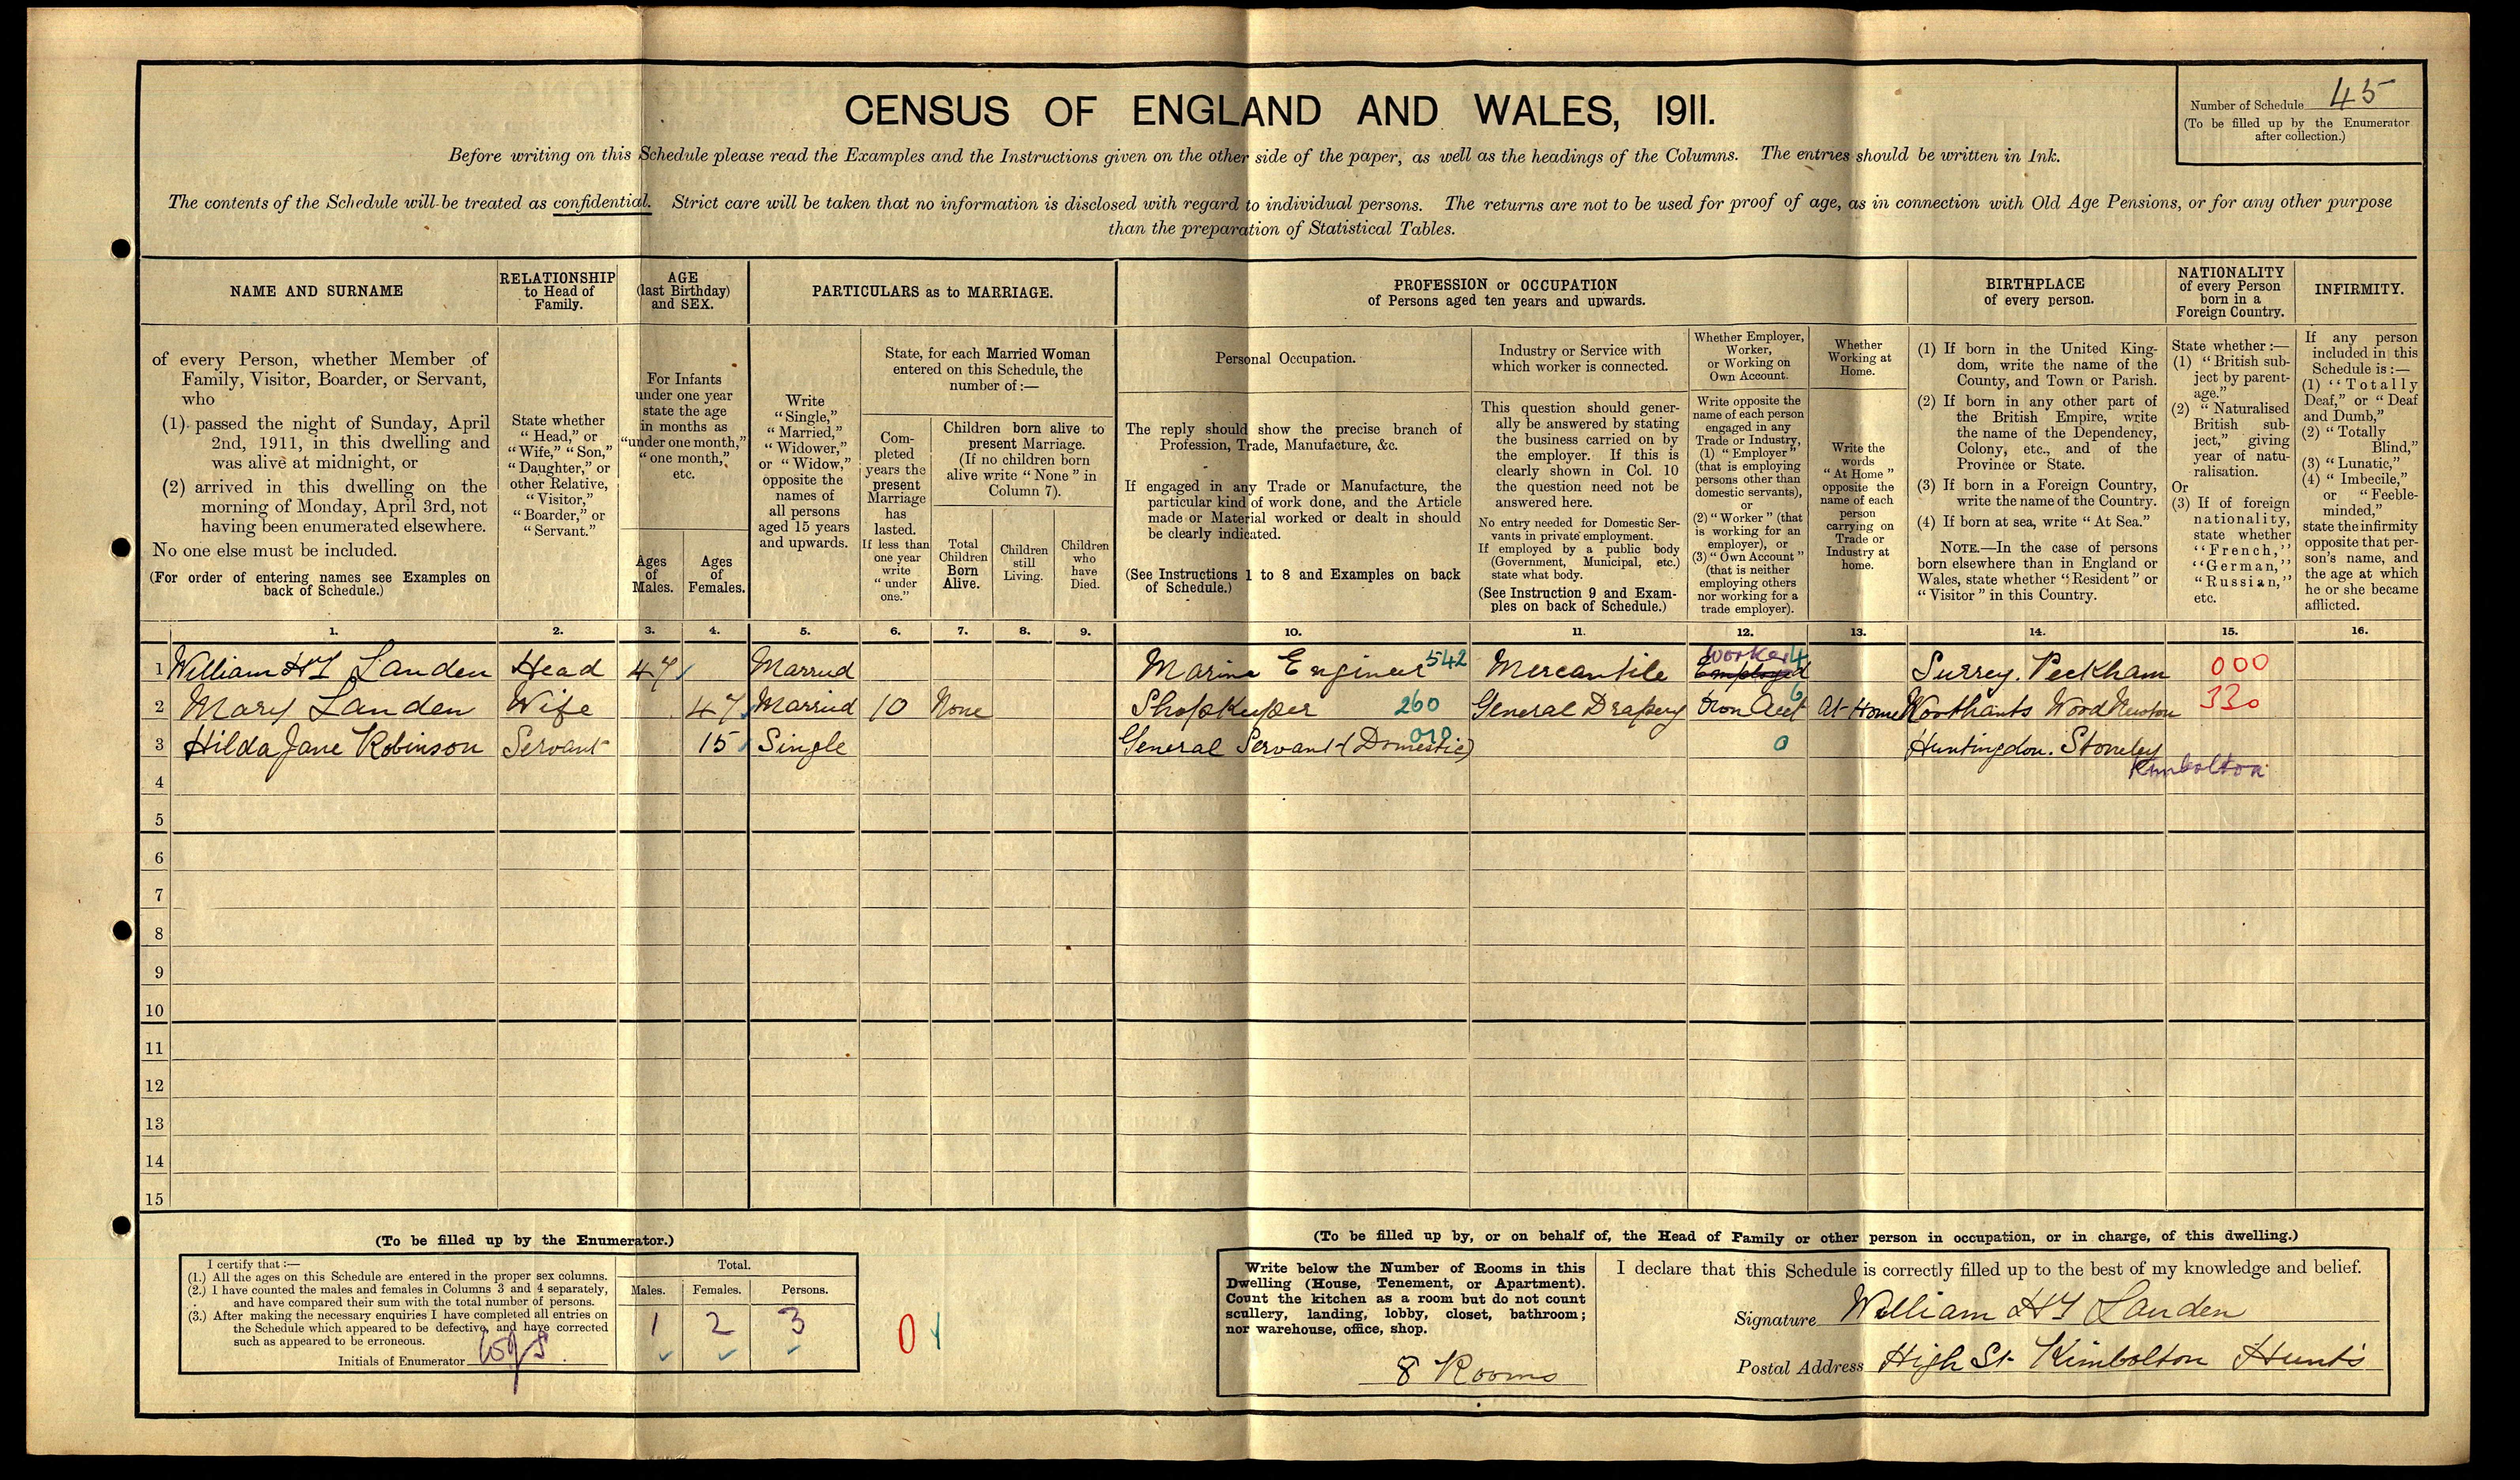 CENSUS OF ENGLAND AND WALES, 1911.
Number of Schedule 45
(To be filled up by the Enumerator
after collection.)
Before writing on this Schedule please read the Examples and the Instructions given on the other side of the paper, as well as the headings of the Columns. The entries should be written in Ink.
The contents of the Schedule will be treated as confidential. Strict care will be taken that no information is disclosed with regard to individual persons. The returns are not to be used for proof of age, as in connection with Old Age Pensions, or for any other purpose
than the preparation of Statistical Tables.
NAME AND SURNAME
of every Person, whether Member of
Family, Visitor, Boarder, or Servant,
who
(1) passed the night of Sunday, April
2nd, 1911, in this dwelling and
was alive at midnight, or
(2) arrived in this dwelling on the
morning of Monday, April 3rd, not
having been enumerated elsewhere.
No one else must be included.
(For order of entering names see Examples on
back of Schedule.)
RELATIONSHIP
to Head of
Family.
State whether
"Head," or
"Wife," "Son,"
"Daughter," or
other Relative,
"Visitor,"
"Boarder," or
"Servant."
AGE
(last Birthday)
and SEX.
For Infants
under one year
state the age
in months as
"under one month,"
"one month,"
etc.
Ages
of
Males.
Ages
of
Females.
PARTICULARS as to MARRIAGE.
Write
"Single,"
"Married,"
"Widower,"
or "Widow,"
opposite the
names of
all persons
aged 15 years
and upwards.
State, for each Married Woman
entered on this Schedule, the
number of :—
Com-
pleted
years the
present
Marriage
has
lasted.
If less than
one year
write
"under
one."
Children born alive to
present Marriage.
(If no children born
alive write "None" in
Column 7).
Total
Children
Born
Alive.
Children
still
Living.
Children
who
have
Died.
PROFESSION or OCCUPATION
of Persons aged ten years and upwards.
Personal Occupation.
The reply should show the precise branch of
Profession, Trade, Manufacture, &c.
If engaged in any Trade or Manufacture, the
particular kind of work done, and the Article
made or Material worked or dealt in should
be clearly indicated.
(See Instructions 1 to 8 and Examples on back
of Schedule.)
Industry or Service with
which worker is connected.
This question should gener-
ally be answered by stating
the business carried on by
the employer. If this is
clearly shown in Col. 10
the question need not be
answered here.
No entry needed for Domestic Ser-
vants in private employment.
If employed by a public body
(Government, Municipal, etc.)
state what body.
(See Instruction 9 and Exam-
ples on back of Schedule.)
Whether Employer,
Worker,
or Working on
Own Account.
Write opposite the
name of each person
engaged in any
Trade or Industry,
(1) "Employer"
(that is employing
persons other than
domestic servants),
or
(2) "Worker" (that
is working for an
employer), or
(3) "Own Account"
(that is neither
employing others
nor working for a
trade employer).
Whether
Working at
Home.
Write the
words
"At Home"
opposite the
name of each
person
carrying on
Trade or
Industry at
home.
BIRTHPLACE
of every person.
(1) If born in the United King-
dom, write the name of the
County, and Town or Parish.
(2) If born in any other part of
the British Empire, write
the name of the Dependency,
Colony, etc., and of the
Province or State.
(3) If born in a Foreign Country,
write the name of the Country.
(4) If born at sea, write "At Sea."
NOTE.—In the case of persons
born elsewhere than in England or
Wales, state whether "Resident" or
"Visitor" in this Country.
NATIONALITY
of every Person
born in a
Foreign Country.
State whether :—
(1) "British sub-
ject by parent-
age."
(2) "Naturalised
British sub-
ject," giving
year of natu-
ralisation.
Or
(3) If of foreign
nationality,
state whether
"French,"
"German,"
"Russian,"
etc.
INFIRMITY.
If any person
included in this
Schedule is :—
(1) "Totally
Deaf," or "Deaf
and Dumb,"
(2) "Totally
Blind,"
(3) "Lunatic,"
(4) "Imbecile,"
or "Feeble-
minded,"
state the infirmity
opposite that per-
son's name, and
the age at which
he or she became
afflicted.
1. 2. 3. 4. 5. 6. 7. 8. 9. 10. 11. 12. 13. 14. 15. 16.
1 William HY Landen Head 47 Married Marine Engineer 542 Mercantile Worker 4 Employed Surrey. Peckham 000
2 Mary Landen Wife 47 Married 10 None ShopKeeper 260 General Drapery Own Acct 6 At Home Northants Wood Newton 330
3 Hilda Jane Robinson Servant 15 Single General Servant (Domestic) 010 0 Huntingdon. Stoneley
Kimbolton
4
5
6
7
8
9
10
11
12
13
14
15
(To be filled up by the Enumerator.)
I certify that :—
(1.) All the ages on this Schedule are entered in the proper sex columns.
(2.) I have counted the males and females in Columns 3 and 4 separately,
and have compared their sum with the total number of persons.
(3.) After making the necessary enquiries I have completed all entries on
the Schedule which appeared to be defective, and have corrected
such as appeared to be erroneous.
Initials of Enumerator
Total.
Males. Females. Persons.
1 2 3
0
(To be filled up by, or on behalf of, the Head of Family or other person in occupation, or in charge, of this dwelling.)
Write below the Number of Rooms in this
Dwelling (House, Tenement, or Apartment).
Count the kitchen as a room but do not count
scullery, landing, lobby, closet, bathroom;
nor warehouse, office, shop.
8 Rooms
I declare that this Schedule is correctly filled up to the best of my knowledge and belief.
Signature William HY Landen
Postal Address High St Kimbolton Hunts